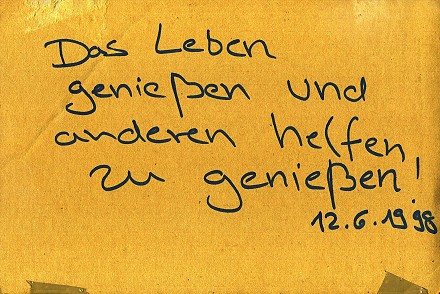 Das Leben
genießen und
anderen helfen
zu genießen!
12.6.1998